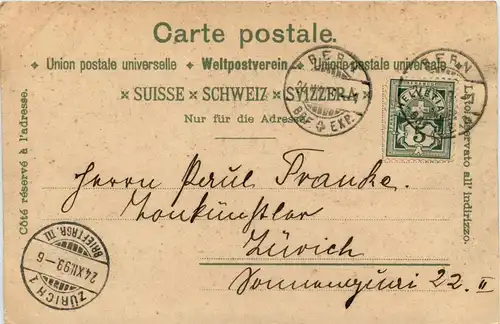 Carte postale.
Union postale universelle Weltpostverein Unione postale universale
SUISSE SCHWEIZ SVIZZERA
Nur für die Adresse.
Côté réservé à l'adresse.
Lato riservato all' indirizzo.
BERN
BRF. EXP.
HELVETIA
5
BERN
Herrn Paul Franke.
Tonkünstler
Zürich
Sonnenquai 22. II
ZÜRICH 1
24.XII.99-6
BRIEFTRGR. III